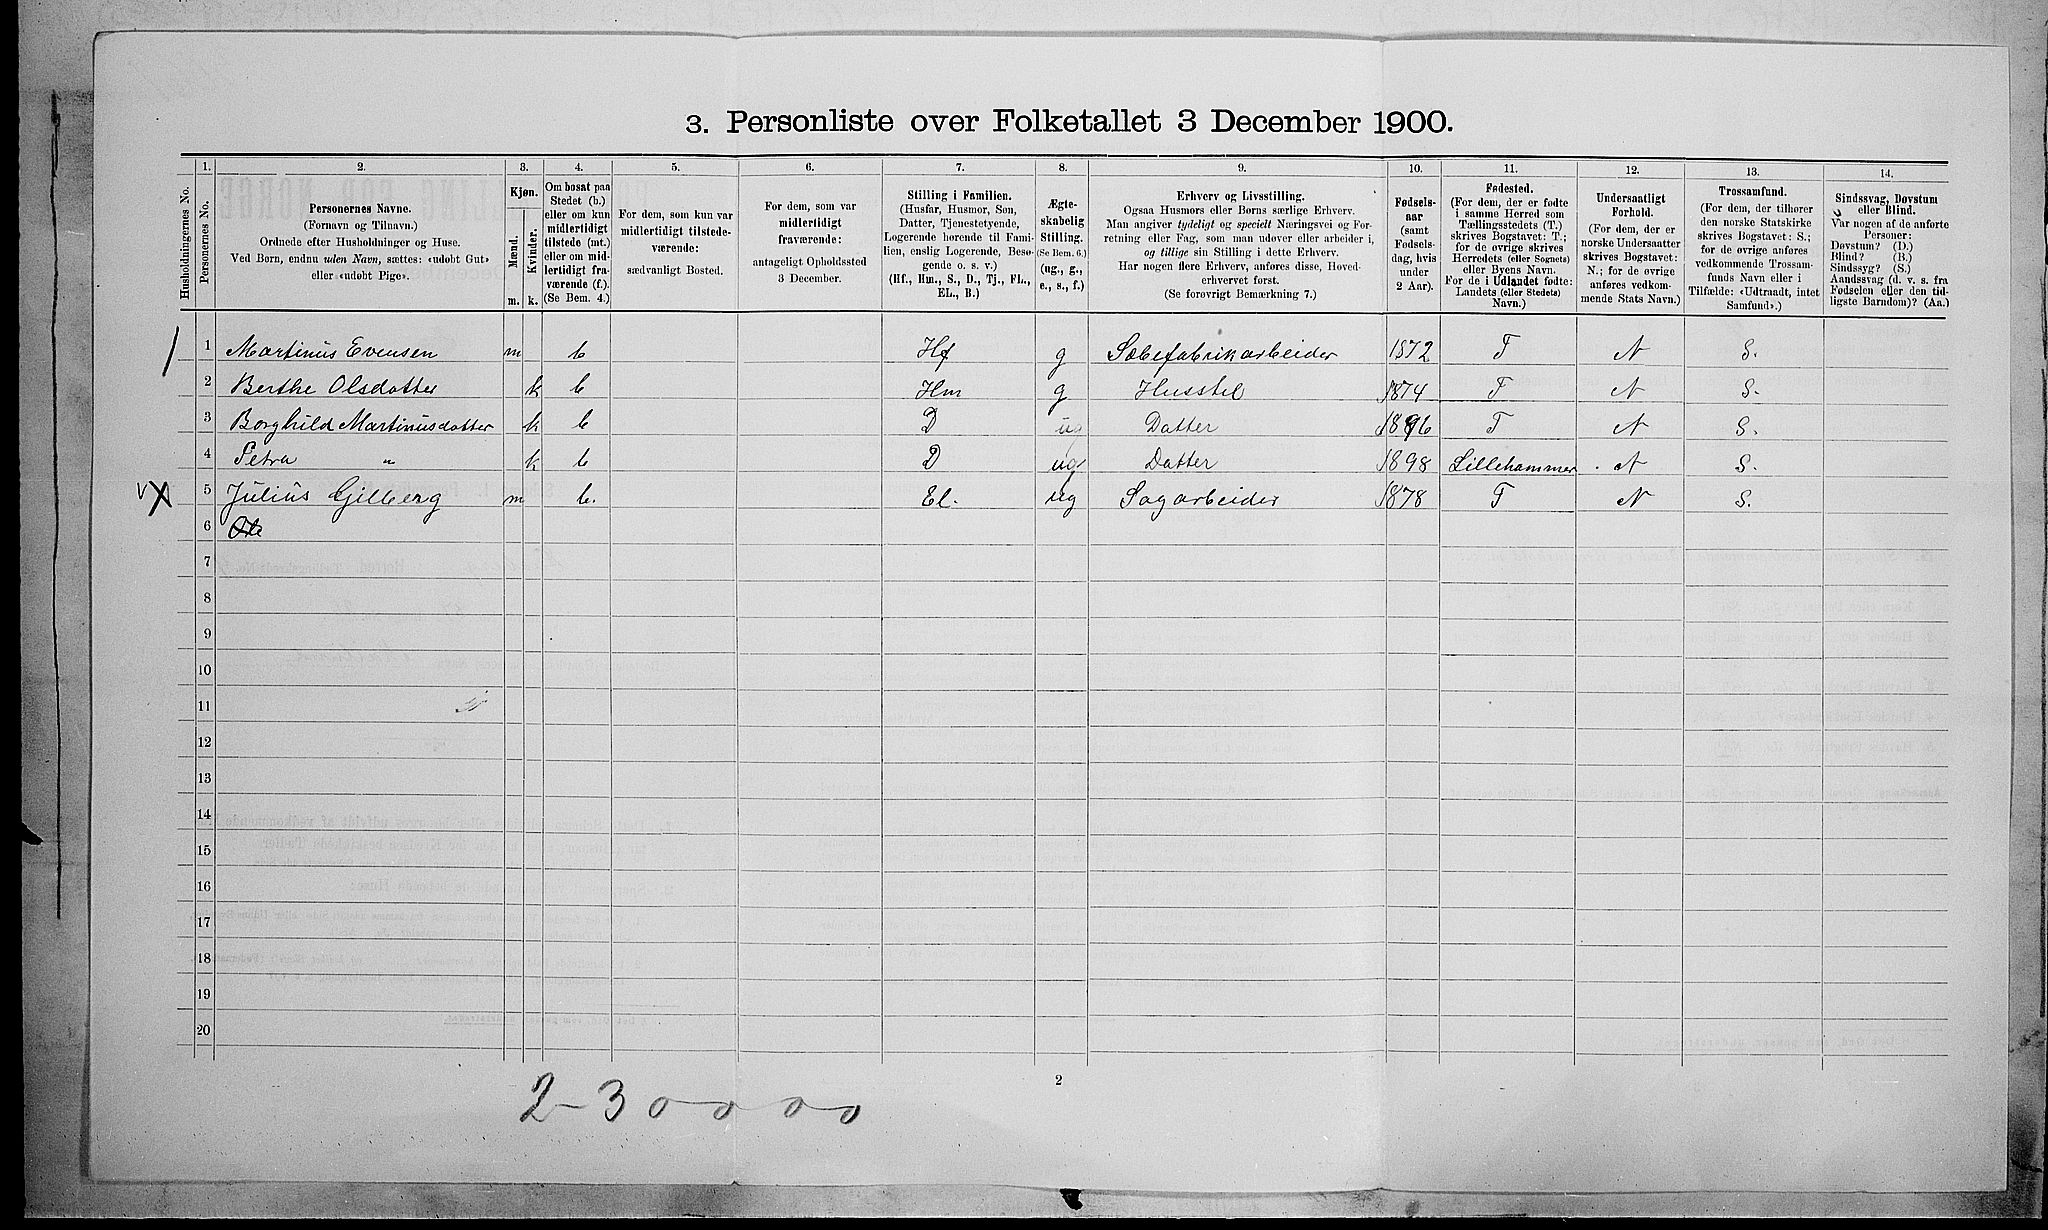 3. Personliste over Folketallet 3 December 1900.
1. 2. 3. 4. 5. 6. 7. 8. 9. 10. 11. 12. 13. 14.
Husholdningernes No.
Personernes No.
Personernes Navne.
(Fornavn og Tilnavn.)
Ordnede efter Husholdninger og Huse.
Ved Børn, endnu uden Navn, sættes: «udøbt Gut»
eller «udøbt Pige».
Kjøn.
Mænd.
Kvinder.
m. k.
Om bosat paa
Stedet (b.)
eller om kun
midlertidigt
tilstede (mt.)
eller om mid-
lertidigt fra-
værende (f.).
(Se Bem. 4.)
For dem, som kun var
midlertidigt tilstede-
værende:
sædvanligt Bosted.
For dem, som var
midlertidigt
fraværende:
antageligt Opholdssted
3 December.
Stilling i Familien.
(Husfar, Husmor, Søn,
Datter, Tjenestetyende,
Logerende hørende til Fami-
lien, enslig Logerende, Besø-
gende o. s. v.)
(Hf., Hm., S., D., Tj., FL.,
EL., B.)
Ægte-
skabelig
Stilling.
(Se Bem. 6.)
(ug., g.,
e., s., f.)
Erhverv og Livsstilling.
Ogsaa Husmors eller Børns særlige Erhverv.
Man angiver tydeligt og specielt Næringsvei og For-
retning eller Fag, som man udøver eller arbeider i,
og tillige sin Stilling i dette Erhverv.
Har nogen flere Erhverv, anføres disse, Hoved-
erhvervet først.
(Se forøvrigt Bemærkning 7.)
Fødsels-
aar
(samt
Fødsels-
dag, hvis
under
2 Aar).
Fødested.
(For dem, der er fødte
i samme Herred som
Tællingsstedets (T.)
skrives Bogstavet: T.;
for de øvrige skrives
Herredets (eller Sognets)
eller Byens Navn.
For de i Udlandet fødte:
Landets (eller Stedets)
Navn.)
Undersaatligt
Forhold.
(For dem, der er
norske Undersaatter
skrives Bogstavet:
N.; for de øvrige
anføres vedkom-
mende Stats Navn.)
Trossamfund.
(For dem, der tilhører
den norske Statskirke
skrives Bogstavet: S.;
for de øvrige anføres
vedkommende Trossam-
funds Navn eller i
Tilfælde: «Udtraadt, intet
Samfund».)
Sindssvag, Døvstum
eller Blind.
Var nogen af de anførte
Personer:
Døvstum? (D.)
Blind? (B.)
Sindssyg? (S.)
Aandssvag (d. v. s. fra
Fødselen eller den tid-
ligste Barndom)? (Aa.)
1 Martinus Evensen m b Hf g Sæbefabrikarbeider 1872 T N S.
2 Berthe Olsdatter k b Hm g Husstel 1874 T N S.
3 Borghild Martinusdatter k b D ug Datter 1896 T N S.
4 Petra " k b D ug Datter 1898 Lillehammer N S.
X 5 Julius Gilberg m b. El. ug Sagarbeider 1878 T N S.
6 Ole
7
8
9
10
11
12
13
14
15
16
17
18
19
20
2
2-3 0 0 0 0